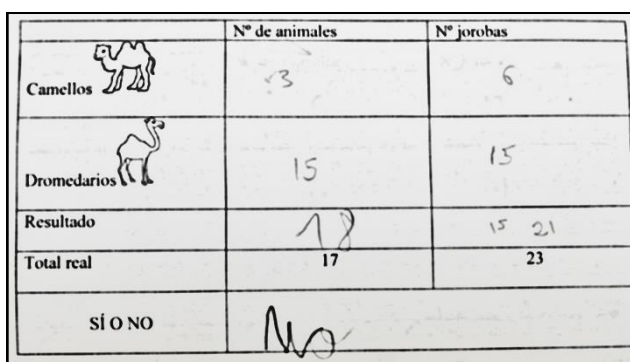 Nº de animales Nº jorobas
Camellos 3 6
Dromedarios 15 15
Resultado 18 15 21
Total real 17 23
SÍ O NO No